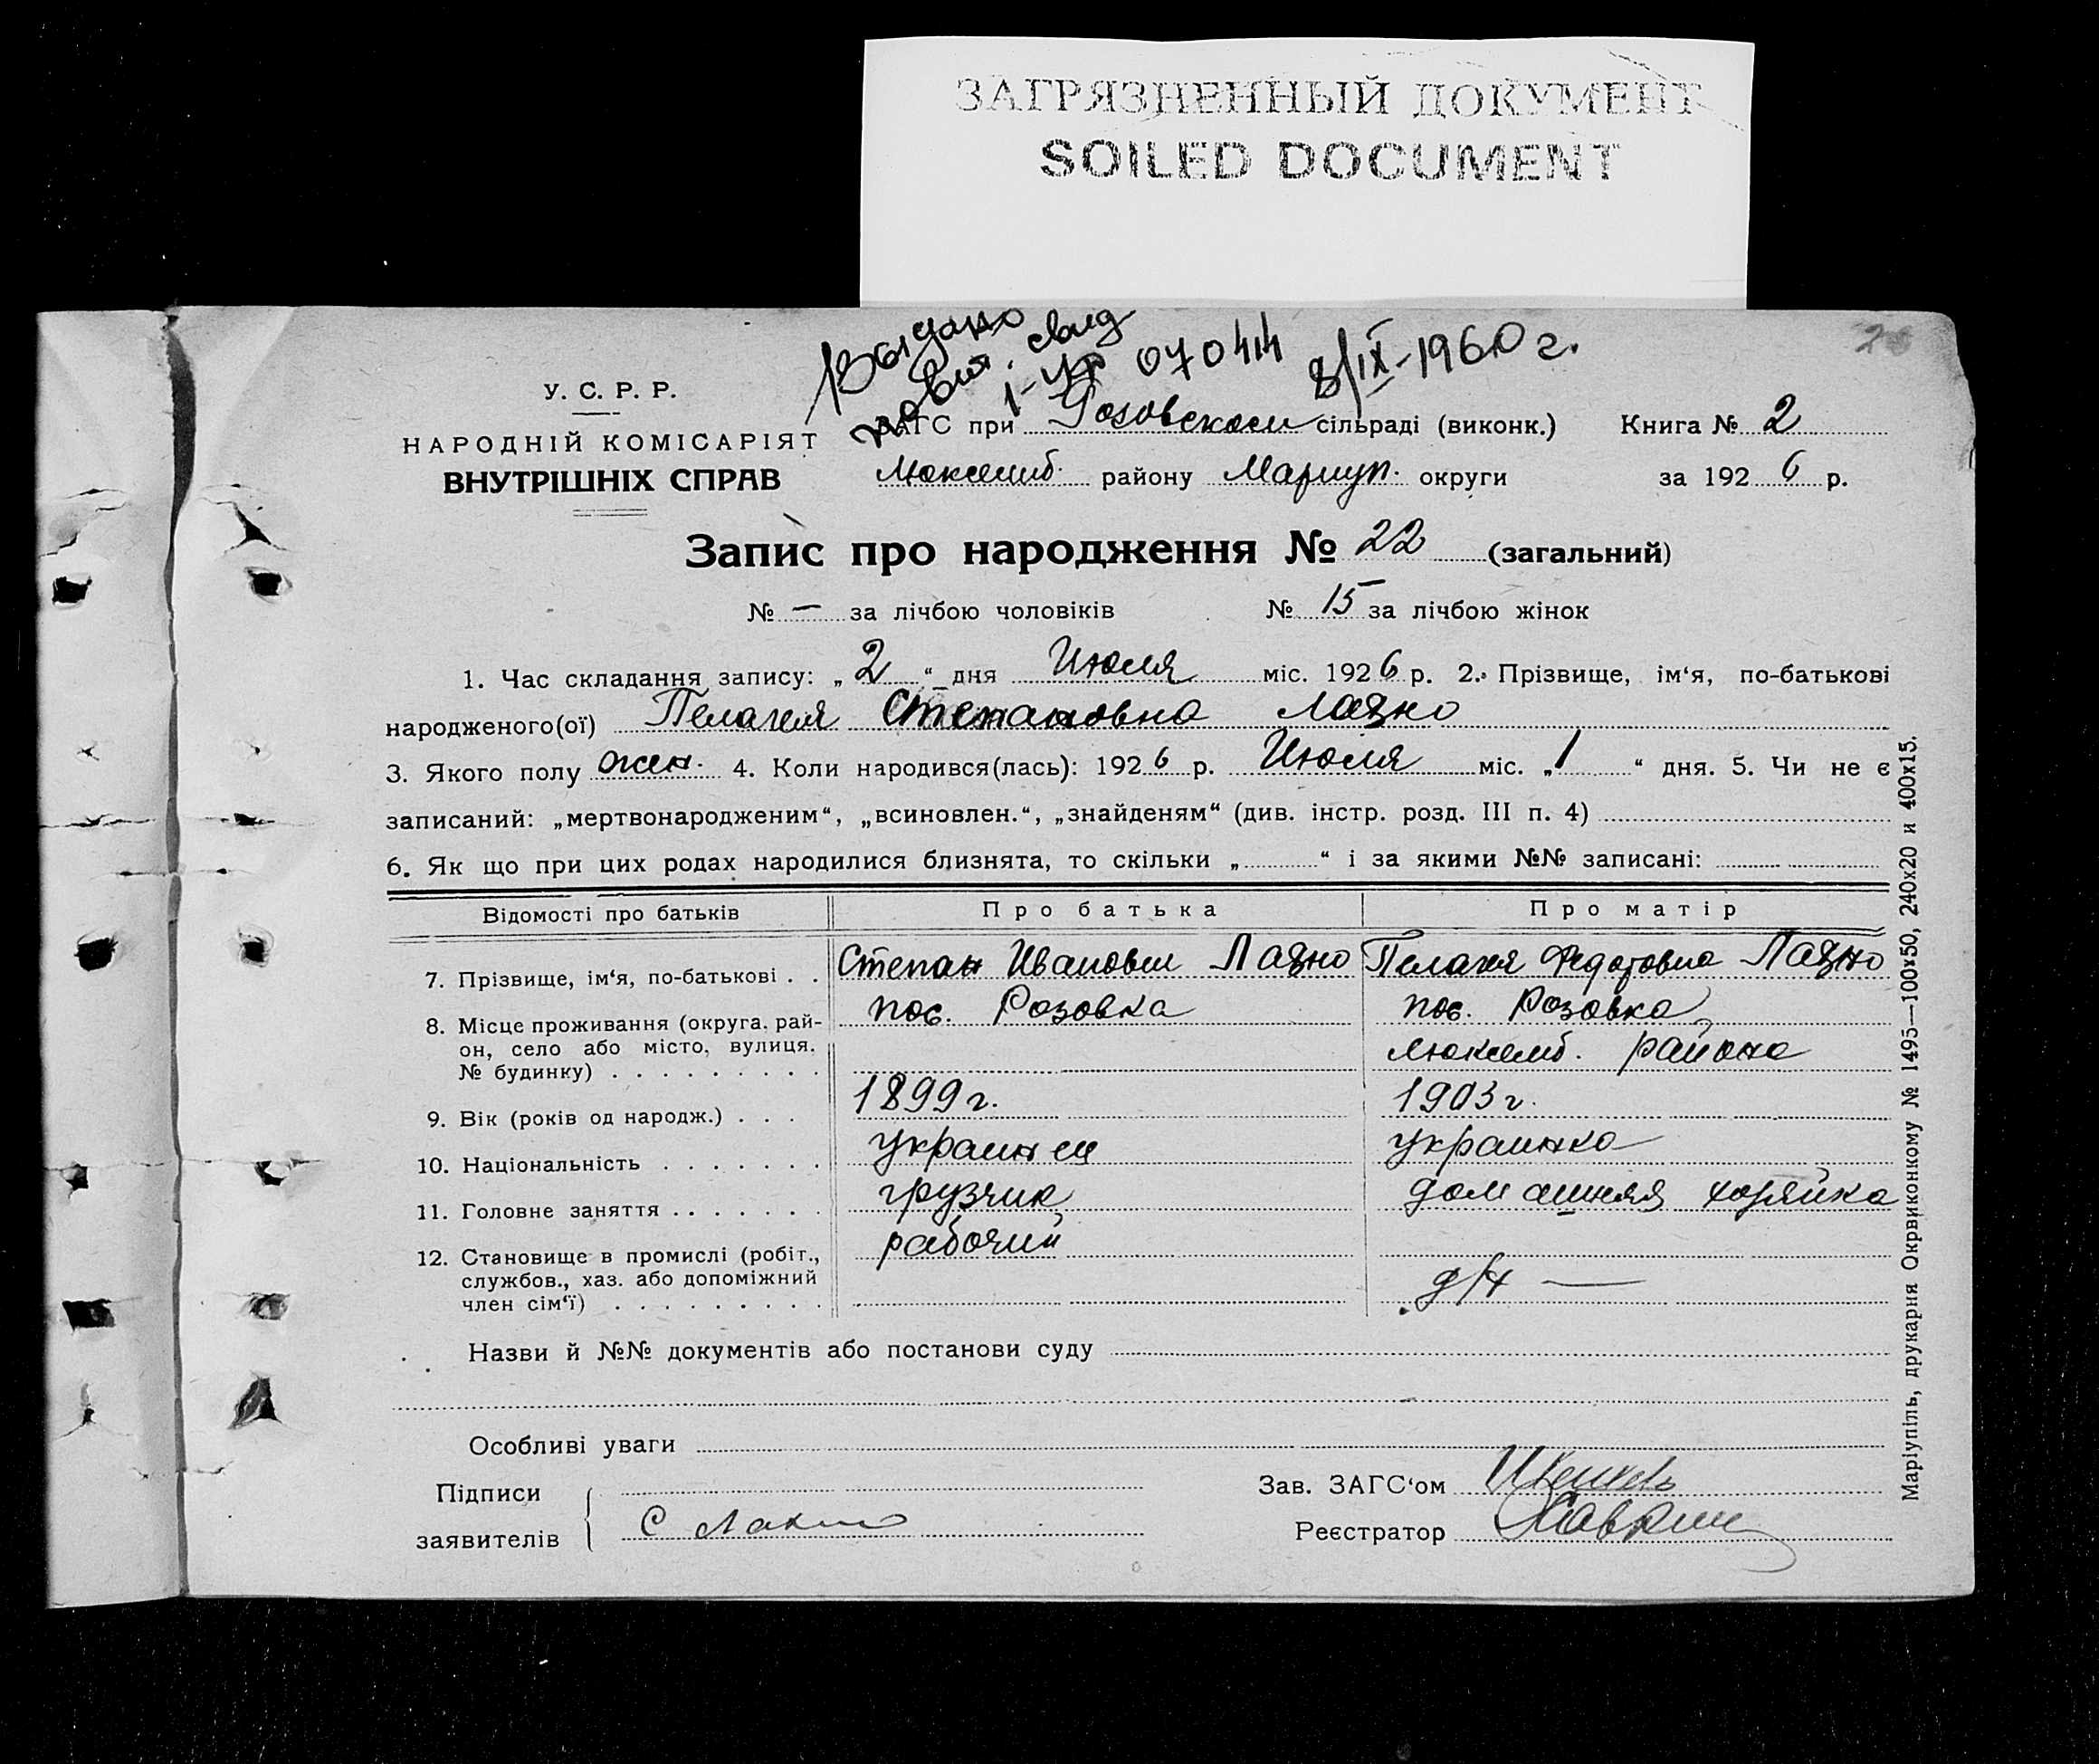 ЗАГРЯЗНЕННЫЙ ДОКУМЕНТ
SOILED DOCUMENT
Выдано
повт. свид
I-УР 07044 8/IX-1960 г.
У. С. Р. Р.
НАРОДНІЙ КОМІСАРІЯТ
ВНУТРІШНІХ СПРАВ
ЗАГС при Розовском сільраді (виконк.) Книга № 2
Люксемб. району Мариуп. округи за 1926 р.
Запис про народження № 22 (загальний)
№ — за лічбою чоловіків № 15 за лічбою жінок
1. Час складання запису: „2“ дня Июля міс. 1926 р. 2. Прізвище, ім‘я, по-батькові
народженого(ої) Пелагея Степановна Лазно
3. Якого полу жен. 4. Коли народився(лась): 1926 р. Июля міс. „1“ дня. 5. Чи не є
записаний: „мертвонародженим“, „всиновлен.“, „знайденям“ (див. інстр. розд. III п. 4)
6. Як що при цих родах народилися близнята, то скільки „ “ і за якими №№ записані:
Відомості про батьків Про батька Про матір
7. Прізвище, ім‘я, по-батькові . . Степан Иванович Лазно Пелагея Федоровна Лазно
8. Місце проживання (округа, рай- пос. Розовка пос. Розовка
он, село або місто, вулиця, Люксемб. района
№ будинку) . . . . . . . . .
9. Вік (років од народж.) . . . 1899 г. 1903 г.
10. Національність . . . . . . . украинец украинка
11. Головне заняття . . . . . . . грузчик домашняя хозяйка
12. Становище в промислі (робіт., рабочий
службов., хаз. або допоміжний д/х —
член сім‘ї) . . . . . . . . .
Назви й №№ документів або постанови суду
Особливі уваги
Підписи
заявителів С
Зав. ЗАГС‘ом
Реєстратор
Маріупіль, друкарня Окрвиконкому № 1495—100×50, 240x20 и 400x15.